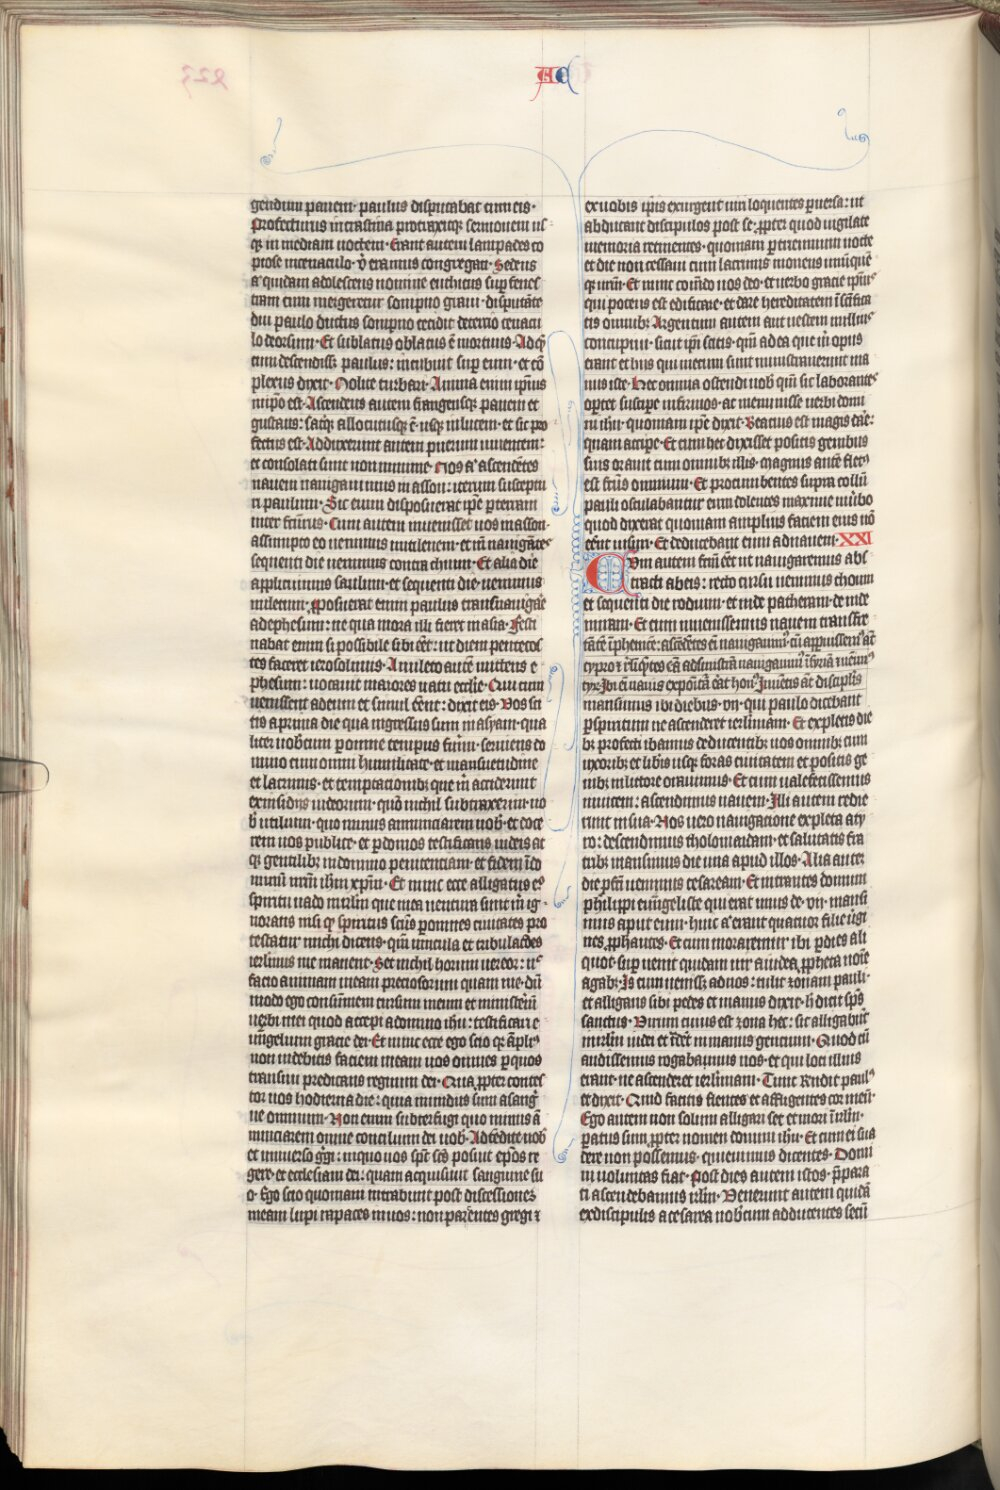 AC
gendum panem· paulus disputabat cum eis·
profecturus in crastina protraxitq; sermonem us
q; in mediam noctem· Erant autem lampades co
piose in cenaculo· ubi eramus congregati· Sedens
a quidam adolescens nomine euthicus sup fenes
tram cum mergeretur sompno graui· disputāte
diu paulo ductus sompno cecidit de tercio cenacu
lo deorsum· Et sublatus oblatus ē mortuus· Ad q̄
cum descendiss; paulus: incubuit sup eum· et cō
plexus dixit· Nolite turbari· Anima enim ipius
in ipo est· Ascendens autem frangensq; panem et
gustans: satisq; allocutusq; ē usq; in lucem· et sic pro
fectus est· Adduxerunt autem puerum uiuentem:
et consolati sunt non minime· Nos a ascendētes
nauem nauigauimus in asson: iterum suscepturi
paulum· Sic enim disposuerat ipe p terram
iter facturus· Cum autem inuenisset nos in asson·
assumpto eo uenimus mutilenem· et in nauigātes
sequenti die uenimus contra chium· Et alia die
applicuimus samum· et sequenti die uenimus
miletum· pposuerat enim paulus transnauigāe
ad ephesum: ne qua mora illi fieret in asia· Festi
nabat enim si possibile sibi eēt: ut diem pentecos
tes faceret ierosolimis· A mileto autē mittens e
phesum: uocauit maiores natu ecclie· Qui cum
uenissent ad eum et simul eēnt: dixit eis· Vos sci
tis a prima die qua ingressus sum in asyam· qua
liter uobcum p omne tempus fuim· seruiens do
mino cum omni humilitate· et mansuetudine
et lacrimis· et temptacionib; que m acciderunt
ex insidiis iudeorum· quō nichil subtraxerim uo
b utilium· quo minus annunciarem uob· et doce
rem uos publice· et p domos testificans iudeis at
q; gentilib; in dominum penitenciam· et fidem ī do
minū nrm ihm xpm· Et nunc ecce alligatus eo
spiritu uado in irlm que in ea uentura sunt m ig
norans nisi q spiritus scus p omnes ciuitates pro
testatur michi dicens· qm uincula et tribulacōes
ierlimis me manent· Set nichil horum uereor: n
facio animam meam preciosiorum quam me· dū
modo ego consummem cursum meum et ministeriū
uerbi mei quod accepi a domino ihu: testificari e
uungelium gracie dei· Et nunc ecce ego scio q; āplius
non uidebitis faciem meam uos omnes p quos
transiui predicans regnum dei· Qua ppter contes
tor uos hodierna die: quia mundus sum a sang
ne omnium· Non enim subterfugi quo minus ā
nunciarem omne consilium dei uob· Adtēdite uob
et uniuerso ggi: in quo uos spc scs posuit epos re
gere· et ecclesiam dei: quam acquisiuit sanguine su
o· Ego scio quoniam intrabunt post discessionem
meam lupi rapaces in uos: non parcentes gregi et
ex uobis ipis exurgent uiri loquentes puersa: ut
abducant discipulos post se· ppter quod uigilate
memoria retinentes· quoniam p triennium nocte
et die non cessaui cum lacrimis monens unūquē
q; urm· Et nunc comdo uos deo· et uerbo gracie ipius
qui potens est edificare· et dare hereditatem ī scifica
tis omnib; Argentum autem aut uestem nullius
concupiui· sicut ipi scitis· qm ad ea que m opus
erant et hiis qui mecum sunt ministrauerunt ma
nus iste· Hec omnia ostendi uob qm sic laborantes
oportet suscipe infirmos· ac meminisse uerbi domi
ni ihu· quoniam ipe dixit· Beatius est magis dare:
quam accipe· Et cum hec dixisset positis genibus
suis orauit cum omnib; illis· Magnus autē fletus
est fcus omnium· Et procumbentes supra collū
pauli osculabantur eum dolentes maxime in uerbo
quod dixerat quoniam amplius faciem eius nō
eēnt uisuri· Et deducebant eum ad nauem· XXI
Cvm autem fcm eēt ut nauigaremus abs
tracti ab eis: recto cursu uenimus choum
et sequenti die rodum· et inde patheram· de inde
miram· Et cum inuenissemus nauem transfre
tātē ī phenicē: ascēdētes ē nauigauim; cū apparuissem; āt
cypro et rlīqtes eā ad sinistrā nauigauim; ī syriā uenim;
tyr· Ibi eni nauis expoitā eāt hon; Inuētis āt disciplis
mansimus ibi diebus· vii· qui paulo dicebant
p spiritum ne ascenderet ierlimam· Et expletis die
b; profecti ibamus deducentib; nos omnib; cum
uxorib; et libis usq; foras ciuitatem et positis ge
nib; in litore orauimus· Et cum ualefecissemus
inuicem: ascendimus nauem· Illi autem redie
runt in sua· Nos uero nauigatione expleta a ty
ro: descendimus tholomaidam· et salutatis fra
trib; mansimus die una apud illos· Alia autem
die pfcti uenimus cesaream· Et intrantes domum
philippi euungeliste qui erat unus de· vii· mansi
mus aput eum· huic a erant quatuor filie uirgi
nes pphantes· Et cum moraremur ibi p dies ali
quot· sup uenit quidam uir a iudea ppheta noīe
agab; Is cum uenisset ad nos: tulit zonam pauli·
et alligans sibi pedes et manus dixit· h dicit sps
sanctus· Virum cuius est zona hec: sic alligabunt
in irlm iudei et tradēt in manus gencium· Quod cū
audissemus rogabamus nos· et qui loci illius
erant· ne ascenderet ierlimam· Tunc rndit paulus
et dixit· Quid facitis flentes et affligentes cor meū·
Ego autem non solum alligari set et mori ī irlm·
paratus sum ppter nomen domini ihu· Et cum ei sua
dere non possemus· quieuimus dicentes· Domi
ni uoluntas fiat· Post dies autem istos· ppara
ti ascendebamus irlm· Venerunt autem quidā
ex discipulis a cesarea nobcum adducentes secū